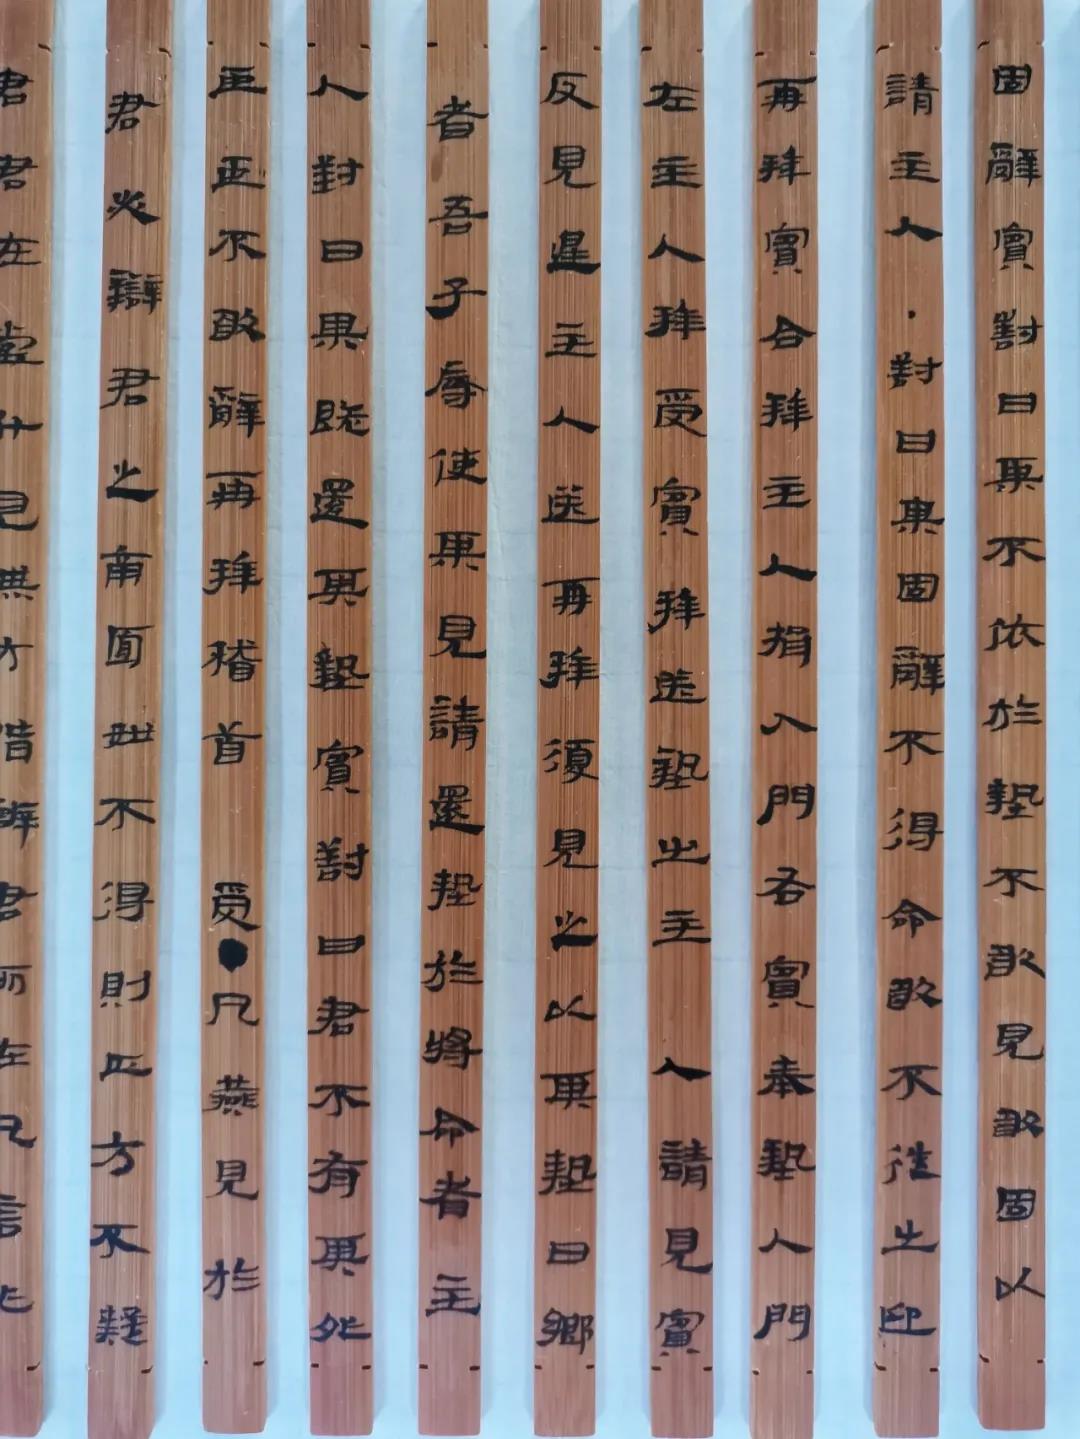 固辭賓對曰某不依於墊不敢見敢固以
請主人·對曰某固辭不得命敢不從出迎
再拜賓合拜主人揖入門右賓奉墊入門
左主人再拜受賓拜送墊出主　人請見賓
反見退主人送再拜復見之以其墊曰鄉
者吾子辱使某見請還墊於將命者主
人對曰某既還其墊賓對曰君不有其外
臣臣不敢辭再拜稽首　受●凡燕見於
君必辯君之南面如不得則正方不疑
君君在堂升見無方階辯君所在凡言非